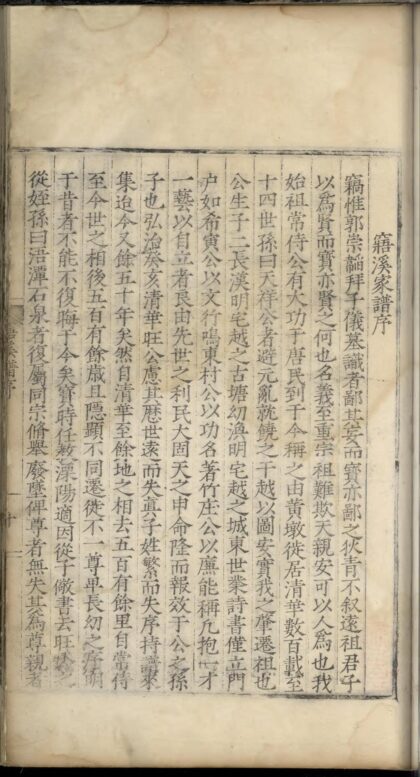 寤溪家譜序
竊惟郭崇韜拜子儀墓識者鄙其妄而實亦鄙之狄青不叙遠祖君子
以為賢而實亦賢之何也名義至重宗祖難欺天親安可以人為也我
始祖常侍公有大功于唐民到于今稱之由黄墩徙居清華數百載至
十四世孫曰天祥公者避元亂就饒之干越以圖安實我之肇遷祖也
公生子二長漢明宅越之古塘幼渙明宅越之城東世業詩書僅立門
户如希寅公以文行鳴東村公以功名著竹庄公以廉能稱凡抱一才
一藝以自立者良由先世之利民大固天之申命隆而報效于公之孫
子也弘治癸亥清華旺公慮其歴世遠而失真子姓繁而失序持譜來
集迨今又餘五十年矣然自清華至餘地之相去五百有餘里自常侍
至今世之相後五百有餘歳且隱顯不同遷徙不一尊卑長幼之序明
于昔者不能不復晦于今矣實時任教溧陽適因從子儆書去旺公之
從姪孫曰浯潭石泉者復屬同宗脩舉廢墜俾尊者無失其為尊親者